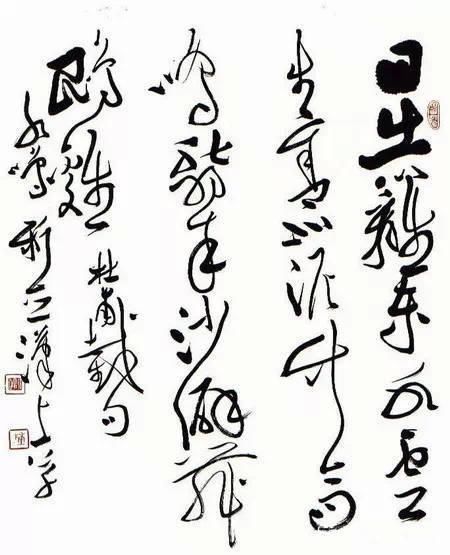 日出籬東水雲
生舍北泥竹高
鳴翡翠沙僻舞
鵾雞 杜甫截句